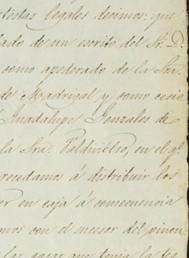 testas legales decimos: que
lado de un escrito del Sr. D.
como apoderado de la Sra.
de Madrigal y como cesio
Guadalupe Gonzales de
la Sra. Valdivielso, en el q!
procedamos á distribuir los
er en caja á consecuencia
mos con el sucesor del vincu
que toma la tes